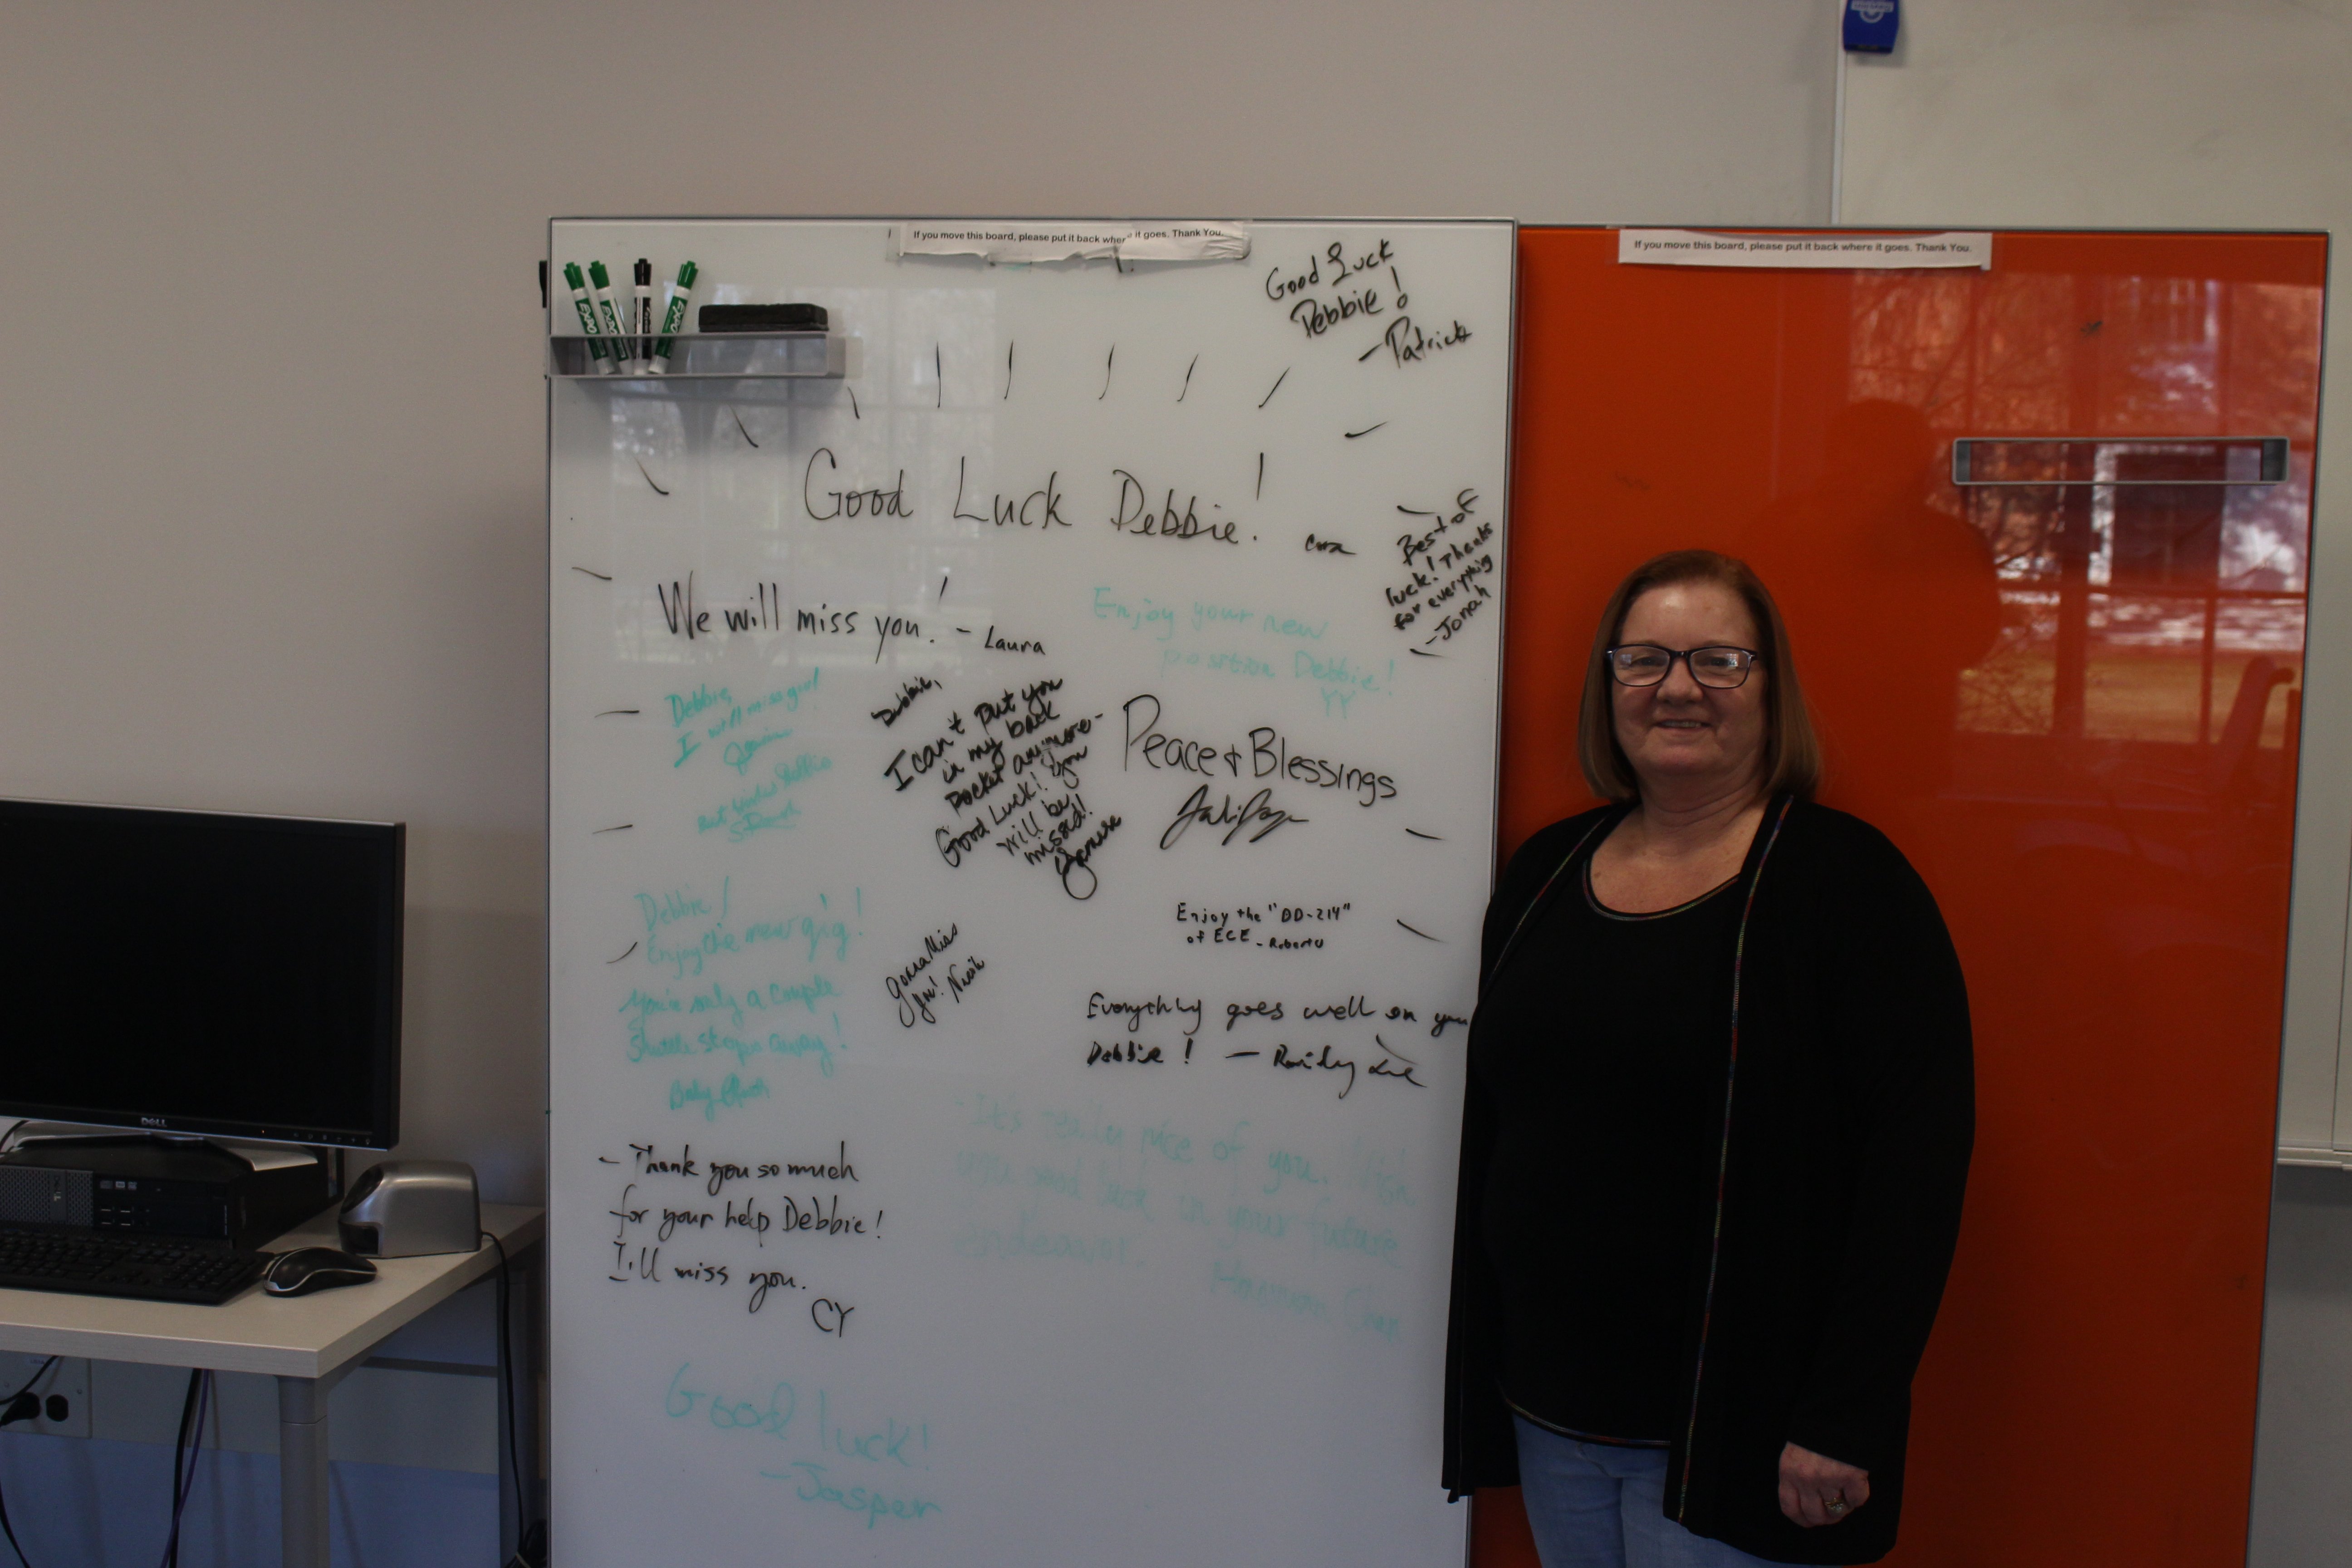 If you move this board, please put it back where it goes. Thank You.
If you move this board, please put it back where it goes. Thank You.
EXPO
EXPO
EXPO
Good Luck
Debbie!
- Patrick
Good Luck Debbie!
Best of
luck! Thanks
for everything
- Jonah
We will miss you! - Laura
Enjoy your new
position Debbie!
YY
Debbie,
I will miss you!
Debbie,
I can't put you
in my back
pocket anymore -
Good Luck! You
will be
missed!
Peace & Blessings
Debbie!
Enjoy the new gig!
You're only a couple
shuttle stops away!
Enjoy the "DD-214"
of ECE - Roberto
gonna Miss
you!
Everything goes well on you
Debbie! -
- It's really nice of you.
you good luck in your future
endeavor
- Thank you so much
for your help Debbie!
I'll miss you.
CY
Good luck!
- Jasper
DELL